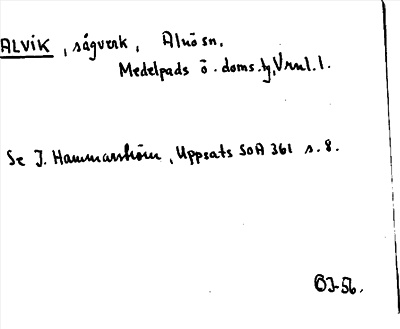 ALVIK, sågverk, Alnö sn,
Medelpads ö. doms.g, Vrnl. l.
Se J. Hammarström, Uppsats SOA 361 s. 8.
BJ-56.